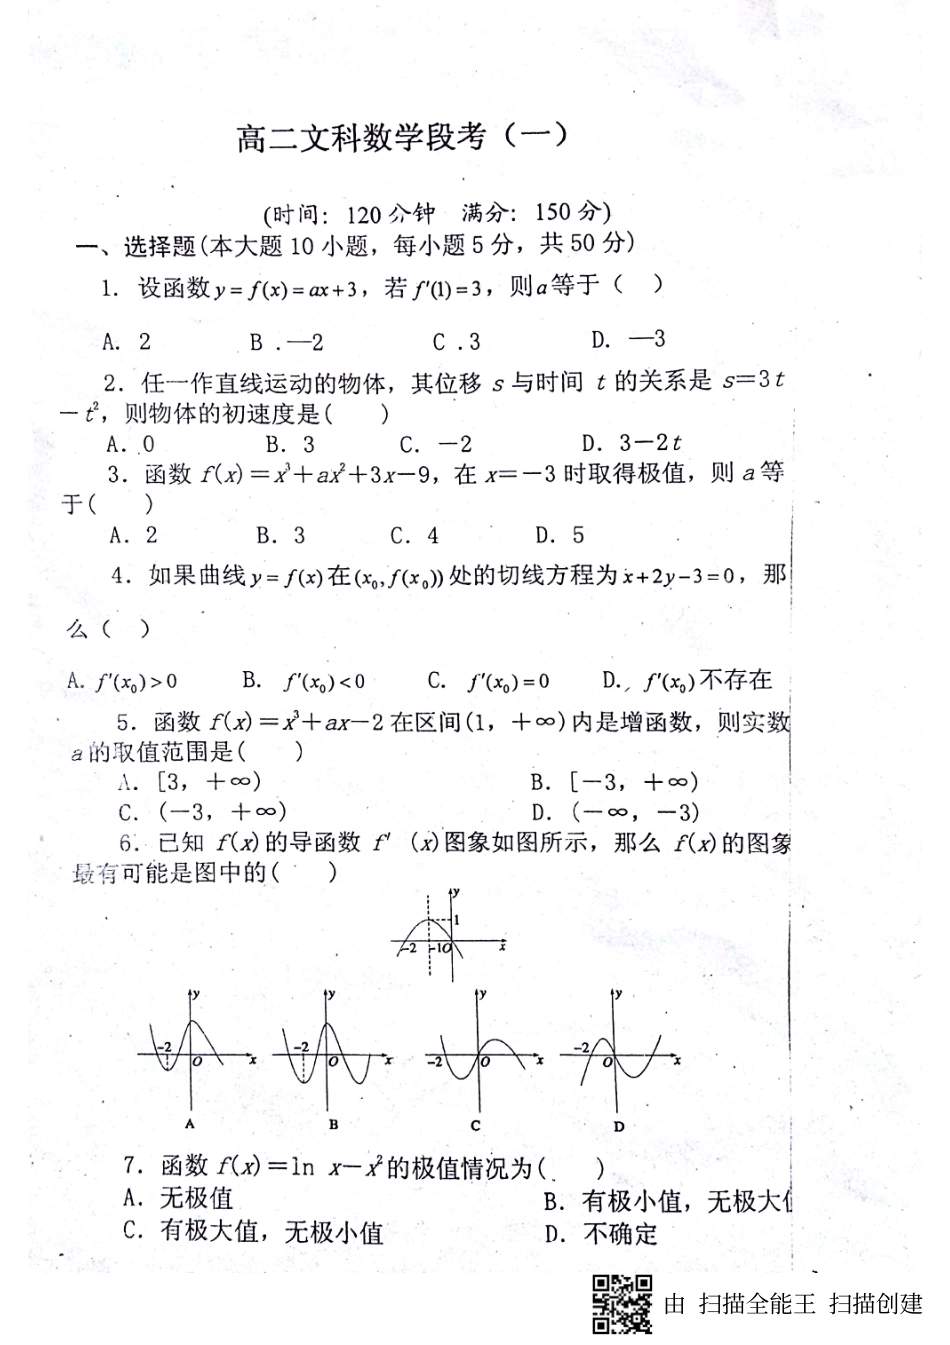 高二文科数学段考（一）
(时间：120分钟 满分：150分)
一、选择题(本大题10小题，每小题5分，共50分)
1. 设函数y=f(x)=ax+3，若f′(1)=3，则a等于（ ）
A. 2 B .—2 C .3 D. —3
2. 任一作直线运动的物体，其位移 s 与时间 t 的关系是 s=3t
－t²，则物体的初速度是( )
A. 0 B. 3 C. －2 D. 3－2t
3. 函数 f(x)=x³＋ax²＋3x－9，在 x=－3 时取得极值，则 a 等
于( )
A. 2 B. 3 C. 4 D. 5
4. 如果曲线y=f(x)在(x₀,f(x₀))处的切线方程为x+2y−3=0，那
么（ ）
A. f′(x₀)>0 B. f′(x₀)<0 C. f′(x₀)=0 D. f′(x₀)不存在
5. 函数 f(x)=x³＋ax－2 在区间(1，＋∞)内是增函数，则实数
a的取值范围是( )
A. [3，＋∞) B. [－3，＋∞)
C. (－3，＋∞) D. (－∞，－3)
6. 已知 f(x)的导函数 f′ (x)图象如图所示，那么 f(x)的图象
最有可能是图中的( )
y
1
-2 -1O x
y y y y
-2 -2 -2 -2
O x O x O x O x
A B C D
7. 函数 f(x)=ln x－x²的极值情况为( )
A. 无极值 B. 有极小值，无极大
C. 有极大值，无极小值 D. 不确定
由 扫描全能王 扫描创建